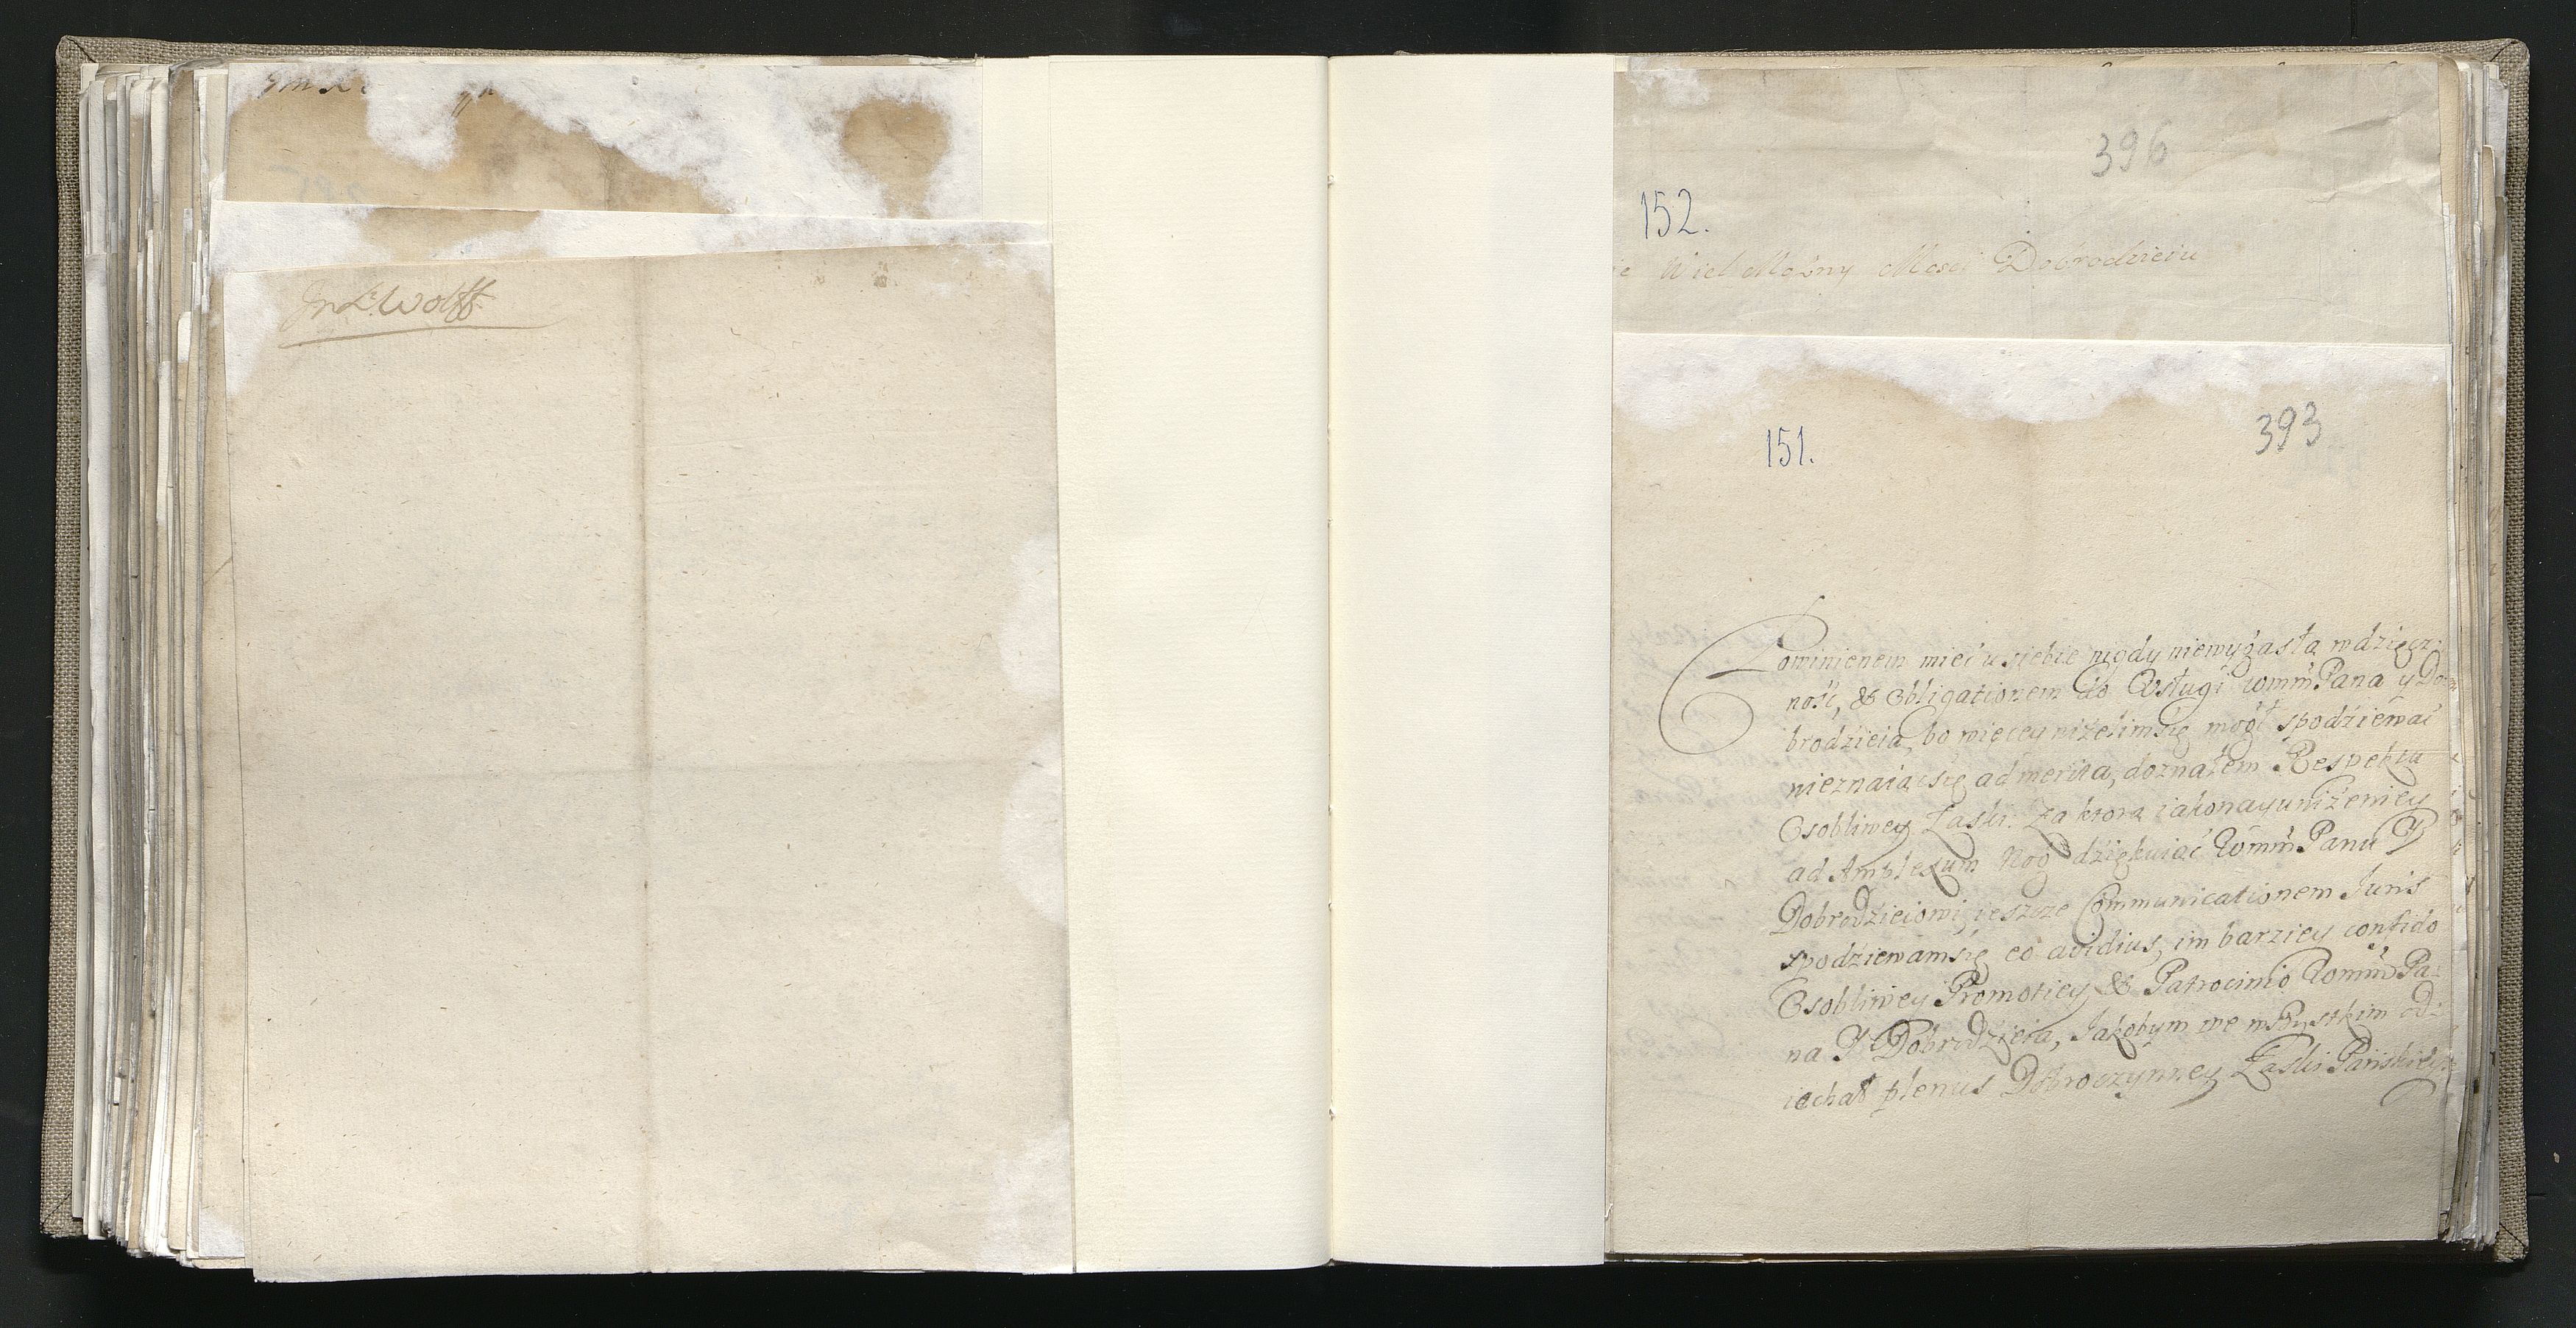 Jn L: Wolff
396
152.
Wiel Możny Mosci Dobrodzieiu
393
151.
Powinienem mieć u siebie nigdy niewygasłą wdzięcz:
ność, & obligationem do Usługi WMM Pana y Do:
brodzieia, bo więcey niżelim się mogł spodziewać
nieznaiąc się ad merita, doznałem Respektu
Osobliwey Łaski. Za ktorą iako nayuniżeniey
ad Amplexum Nog dziękuiąc WMM Panu Y
Dobrodzieiowi, ieszcze Communicationem Juris
spodziewam się eo avidius, im barziey confido
Osobliwey Promotiey & Patrocinio WMM Pa:
na Y Dobrodzieia, Jakobym we wszystkim od:
iechał plenus Dobroczynney Łaski Pańskiey